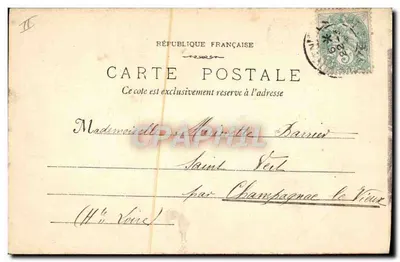 II
RÉPUBLIQUE FRANÇAISE
CARTE POSTALE
Ce côté est exclusivement réservé à l'adresse
Mademoiselle Marcelle Barrier
Saint Vert
par Champagnac le Vieux
(Hte Loire)
CPAPHIL